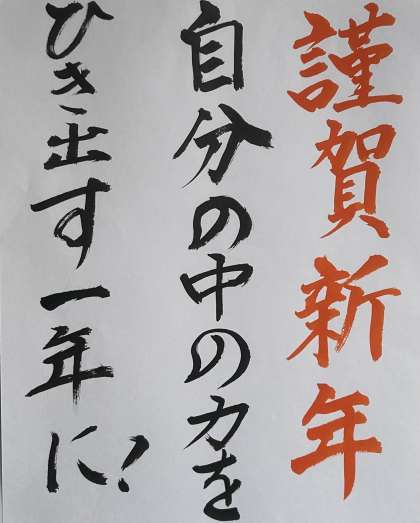 謹賀新年
自分の中の力を
ひき出す一年に!